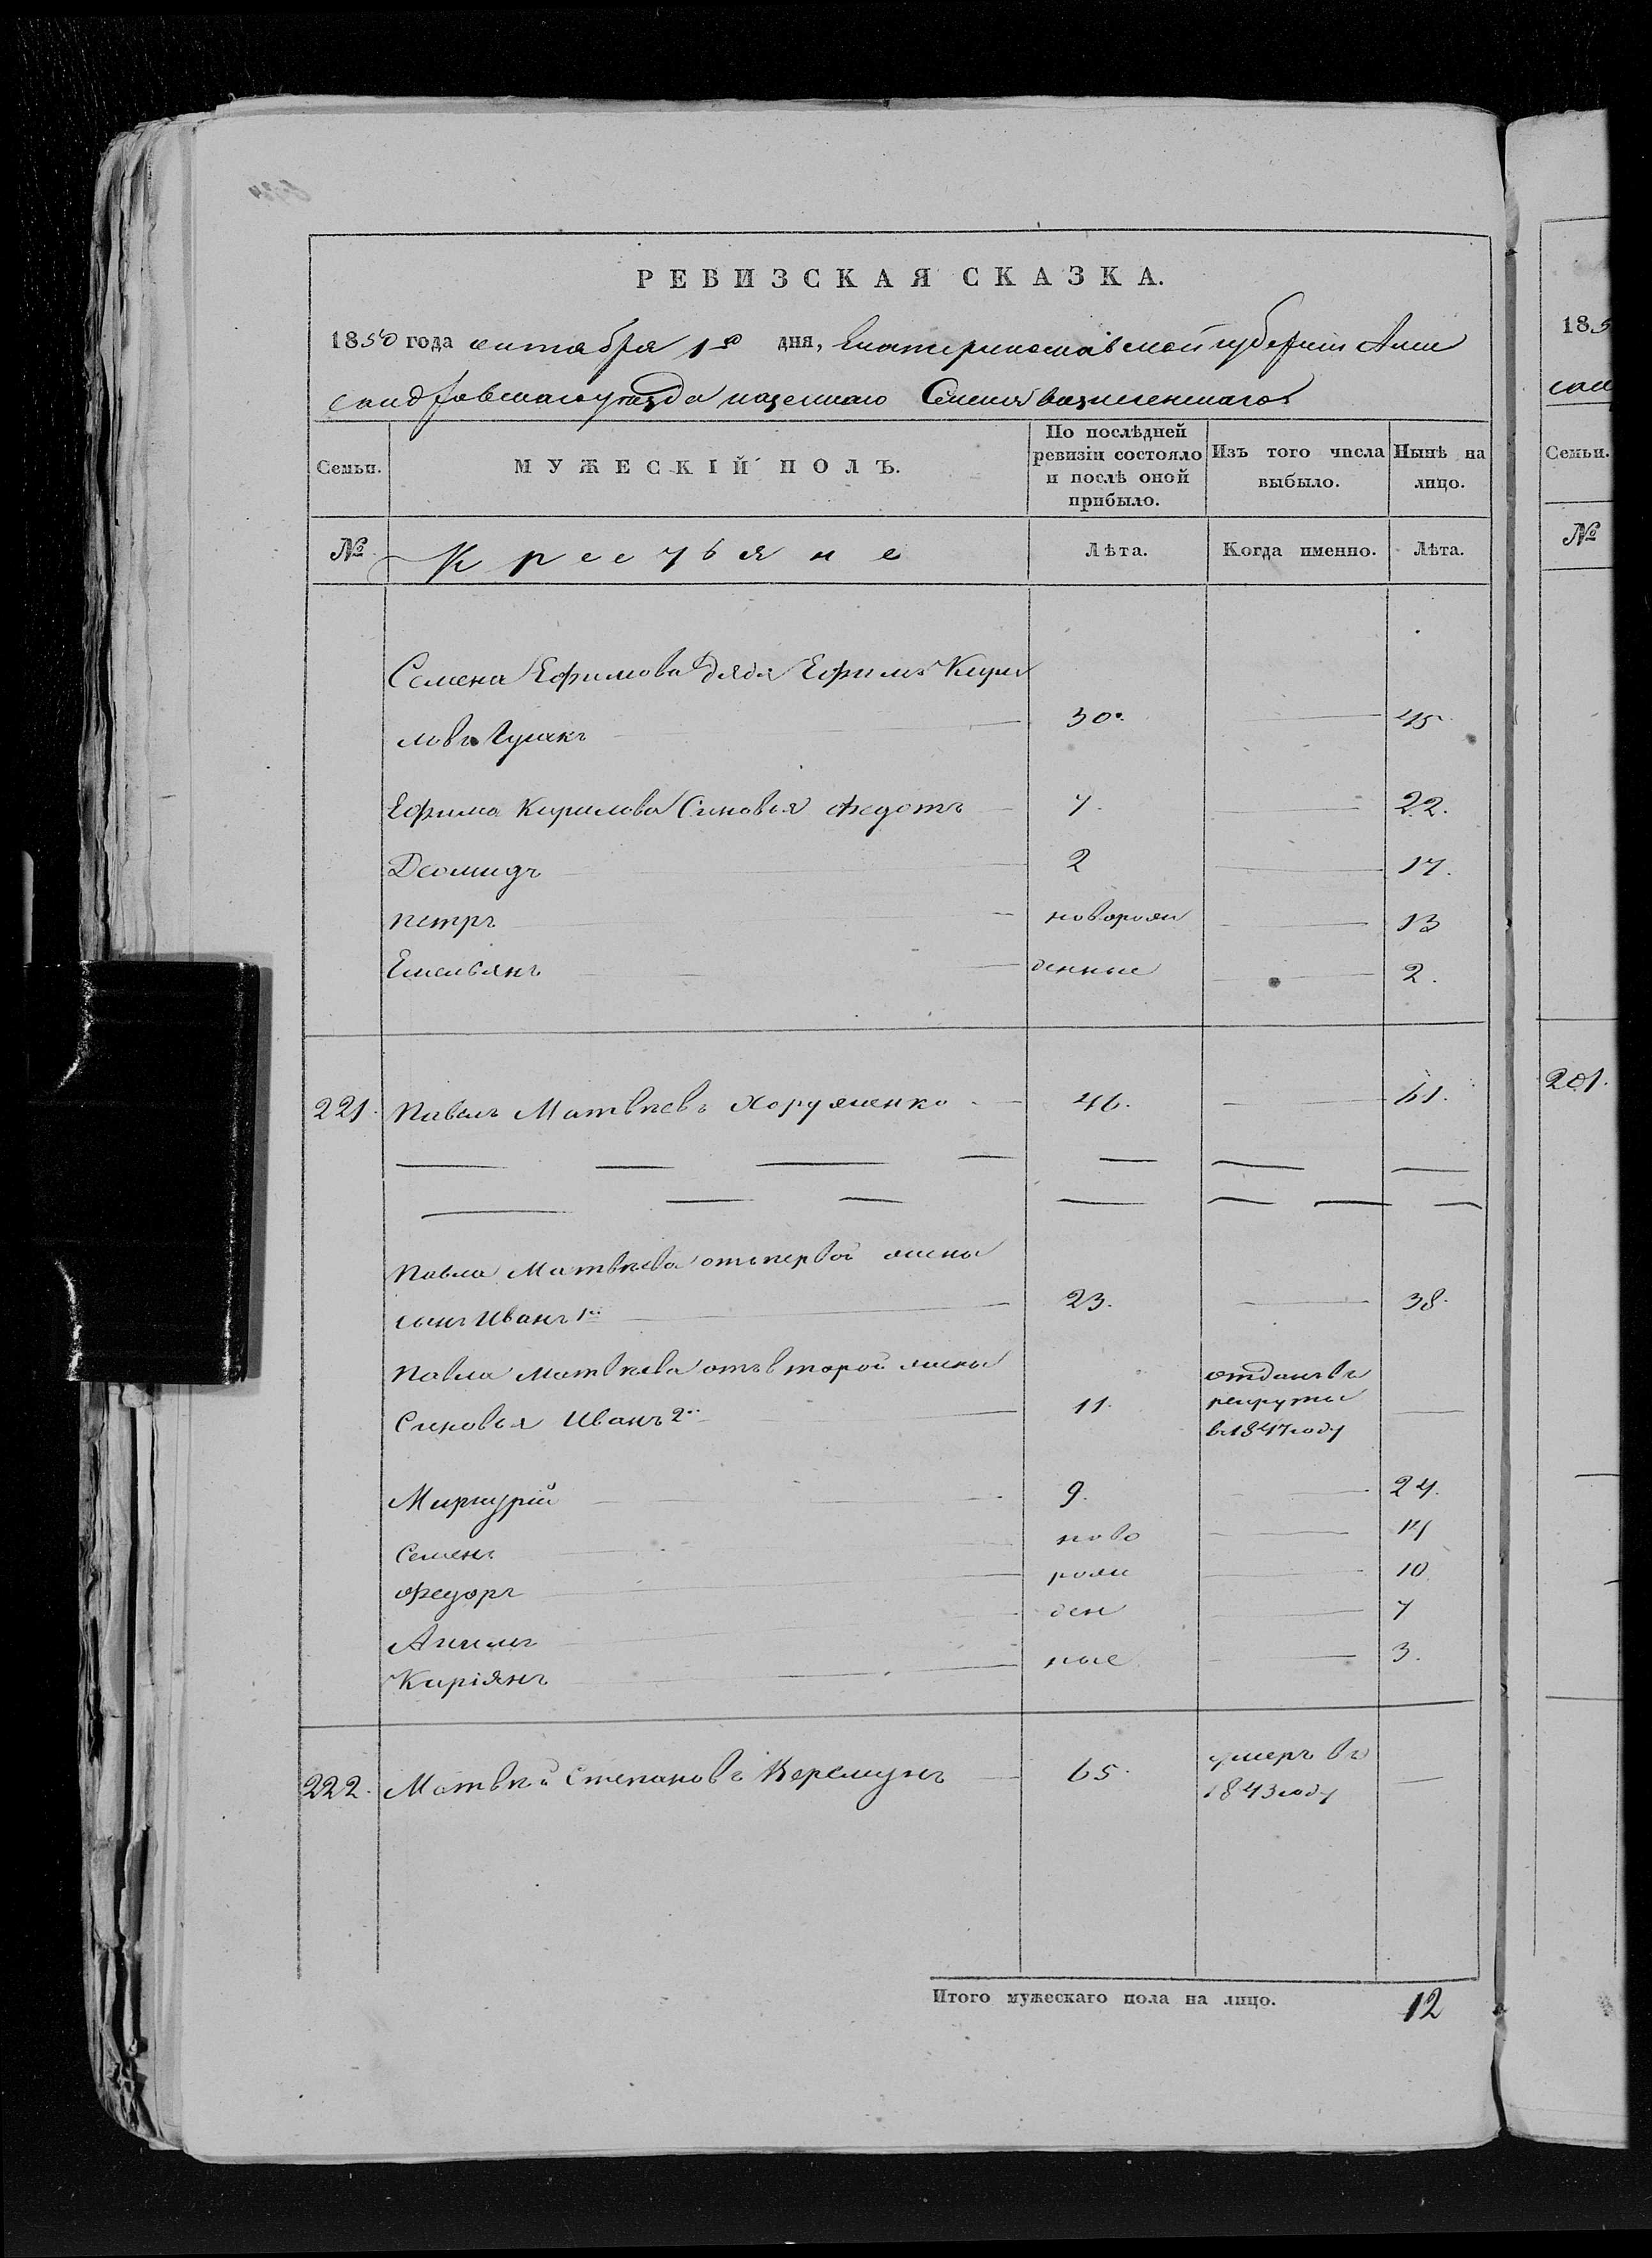 РЕВИЗСКАЯ СКАЗКА.
1850 года октября 1го дня, Екатеринославской губернии Алек
сандровскаго уезда казеннаго Селения вознесенскаго
Семьи.
МУЖЕСКІЙ ПОЛЪ.
По послѣдней ревизіи состояло и послѣ оной прибыло.
Изъ того числа выбыло.
Нынѣ на лицо.
№ Крестьяне Лѣта. Когда именно. Лѣта.
Семена Ефимова дядя Ефимъ Кири
ловъ Гусакъ 30. 45
Ефима Кирилова Синовья Федотъ 7. 22.
Деомидъ 2 17.
петръ новорож 13
Емельянъ денные 2.
221. Павелъ Матвѣевъ Хоруженко 46. 61.
Павла Матвѣева отъ первой жены
сынъ Иванъ 1й 23. 38.
Павла Матвѣева отъ второй жены отданъ въ
рекруты
Синовья Иванъ 2й 11. в 1847 году
Меркурій 9. 24.
Семенъ ново 14
Федоръ рож 10
ден 7
Киріянъ ные 3.
222. Матвѣй Степановъ 65. умеръ въ
1843 году
Итого мужескаго пола на лицо. 12
18
Семьи.
№
201.